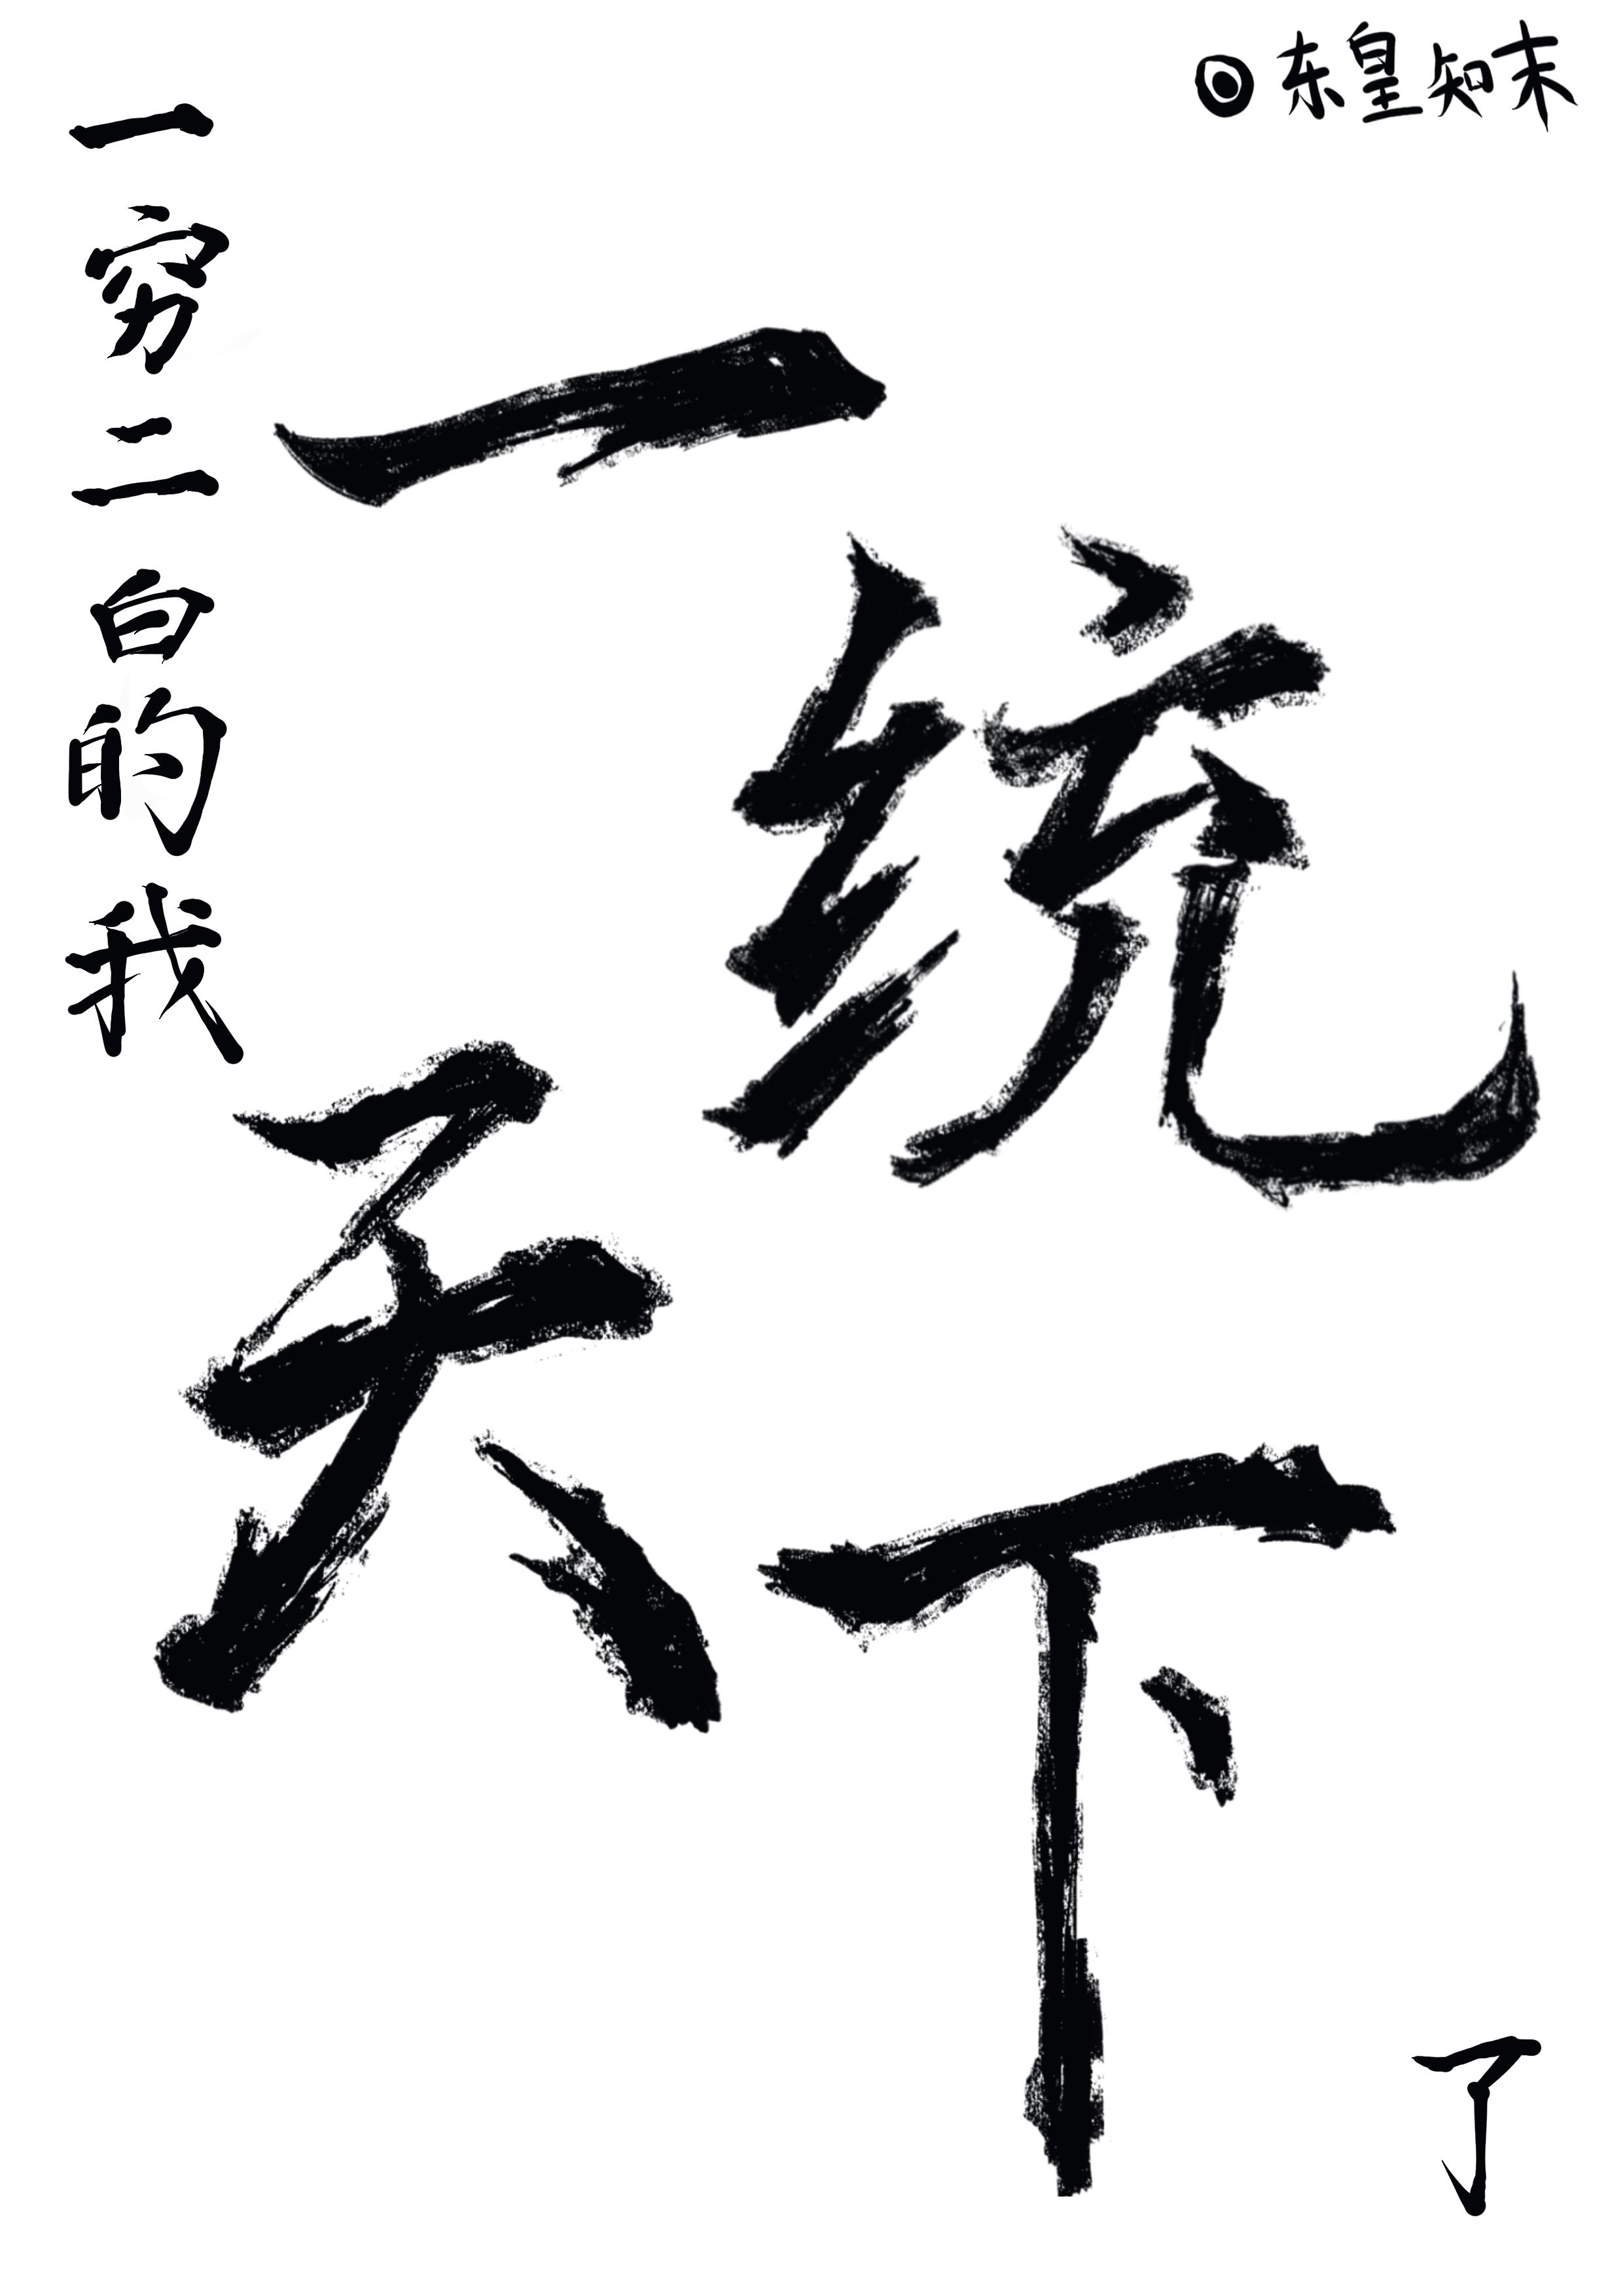 ◎东皇知末
一穷二白的我
一统
天下
了